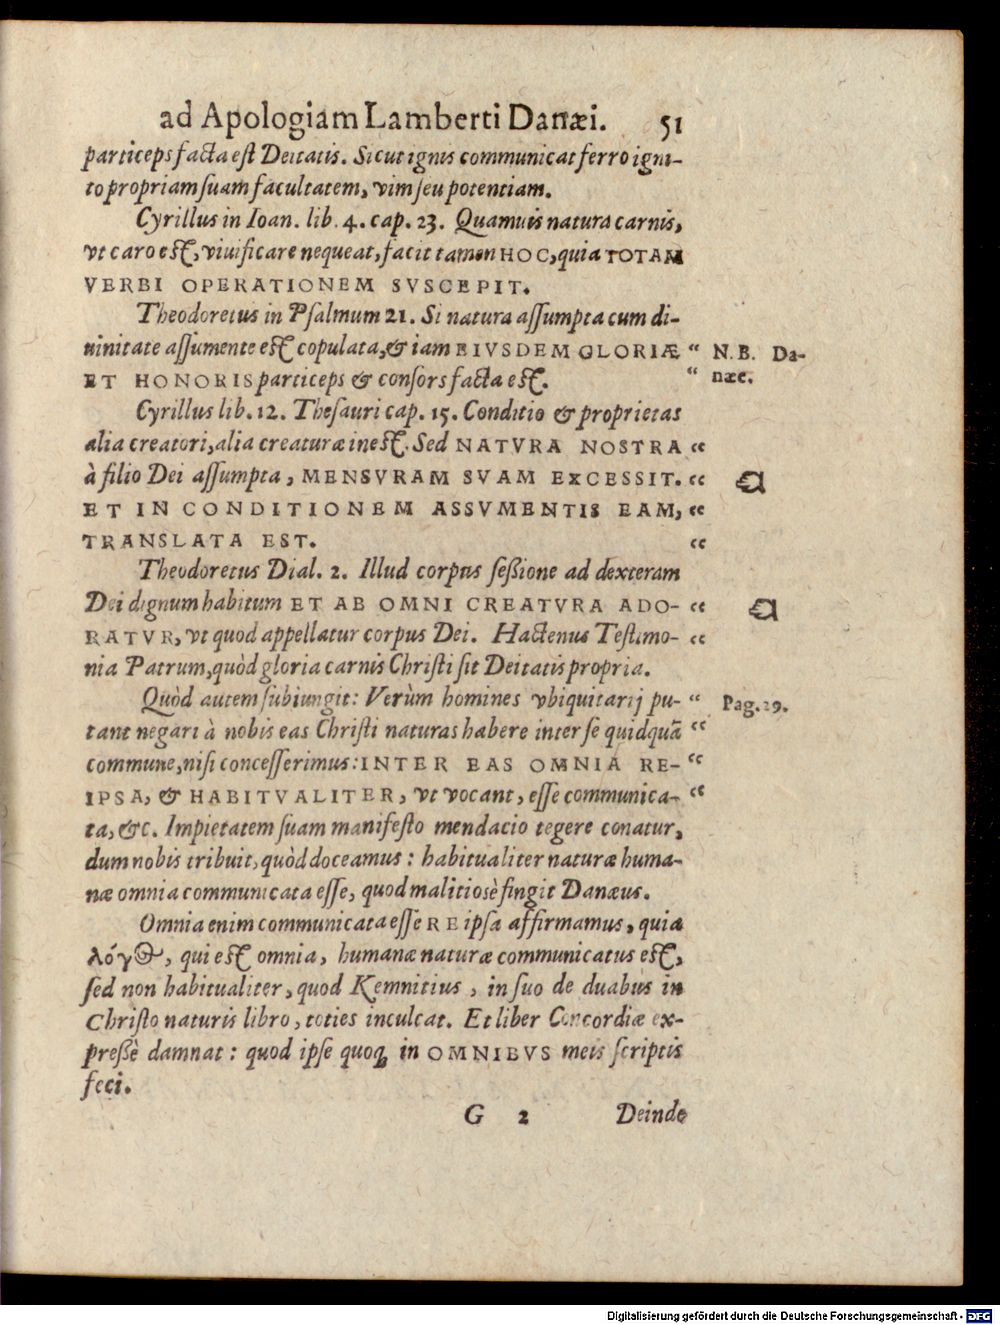 ad Apologiam Lamberti Danæi. 51
particeps facta est Deitatis. Sicut ignis communicat ferro igni-
to propriam suam facultatem, vim seu potentiam.
Cyrillus in Ioan. lib. 4. cap. 23. Quamuis natura carnis,
vt caro est, viuificare nequeat, facit tamen HOC, quia TOTAM
VERBI OPERATIONEM SVSCEPIT.
Theodoretus in Psalmum 21. Si natura assumpta cum di-
uinitate assumente est copulata, & iam EIVSDEM GLORIÆ “ N. B. Da-
ET HONORIS particeps & consors facta est. “ næe.
Cyrillus lib. 12. Thesauri cap. 15. Conditio & proprietas
alia creatori, alia creaturæ inest. Sed NATVRA NOSTRA “
à filio Dei assumpta, MENSVRAM SVAM EXCESSIT. “ ☜
ET IN CONDITIONEM ASSVMENTIS EAM, “
TRANSLATA EST. “
Theodoretus Dial. 2. Illud corpus seßione ad dexteram
Dei dignum habitum ET AB OMNI CREATVRA ADO- “ ☜
RATVR, vt quod appellatur corpus Dei. Hactenus Testimo- “
nia Patrum, quòd gloria carnis Christi sit Deitatis propria.
Quòd autem subiungit: Verùm homines vbiquitarij pu- “ Pag. 29.
tant negari à nobis eas Christi naturas habere inter se quidquã “
commune, nisi concesserimus: INTER EAS OMNIA RE- “
IPSA, & HABITVALITER, vt vocant, esse communica- “
ta, &c. Impietatem suam manifesto mendacio tegere conatur,
dum nobis tribuit, quòd doceamus: habitualiter naturæ huma-
næ omnia communicata esse, quod malitiosè fingit Danæus.
Omnia enim communicata esse RE ipsa affirmamus, quia
λόγος, qui est omnia, humanæ naturæ communicatus est,
sed non habitualiter, quod Kemnitius, in suo de duabus in
Christo naturis libro, toties inculcat. Et liber Concordiæ ex-
preßè damnat: quod ipse quoq; in OMNIBVS meis scriptis
feci.
G 2 Deinde
Digitalisierung gefördert durch die Deutsche Forschungsgemeinschaft - DFG